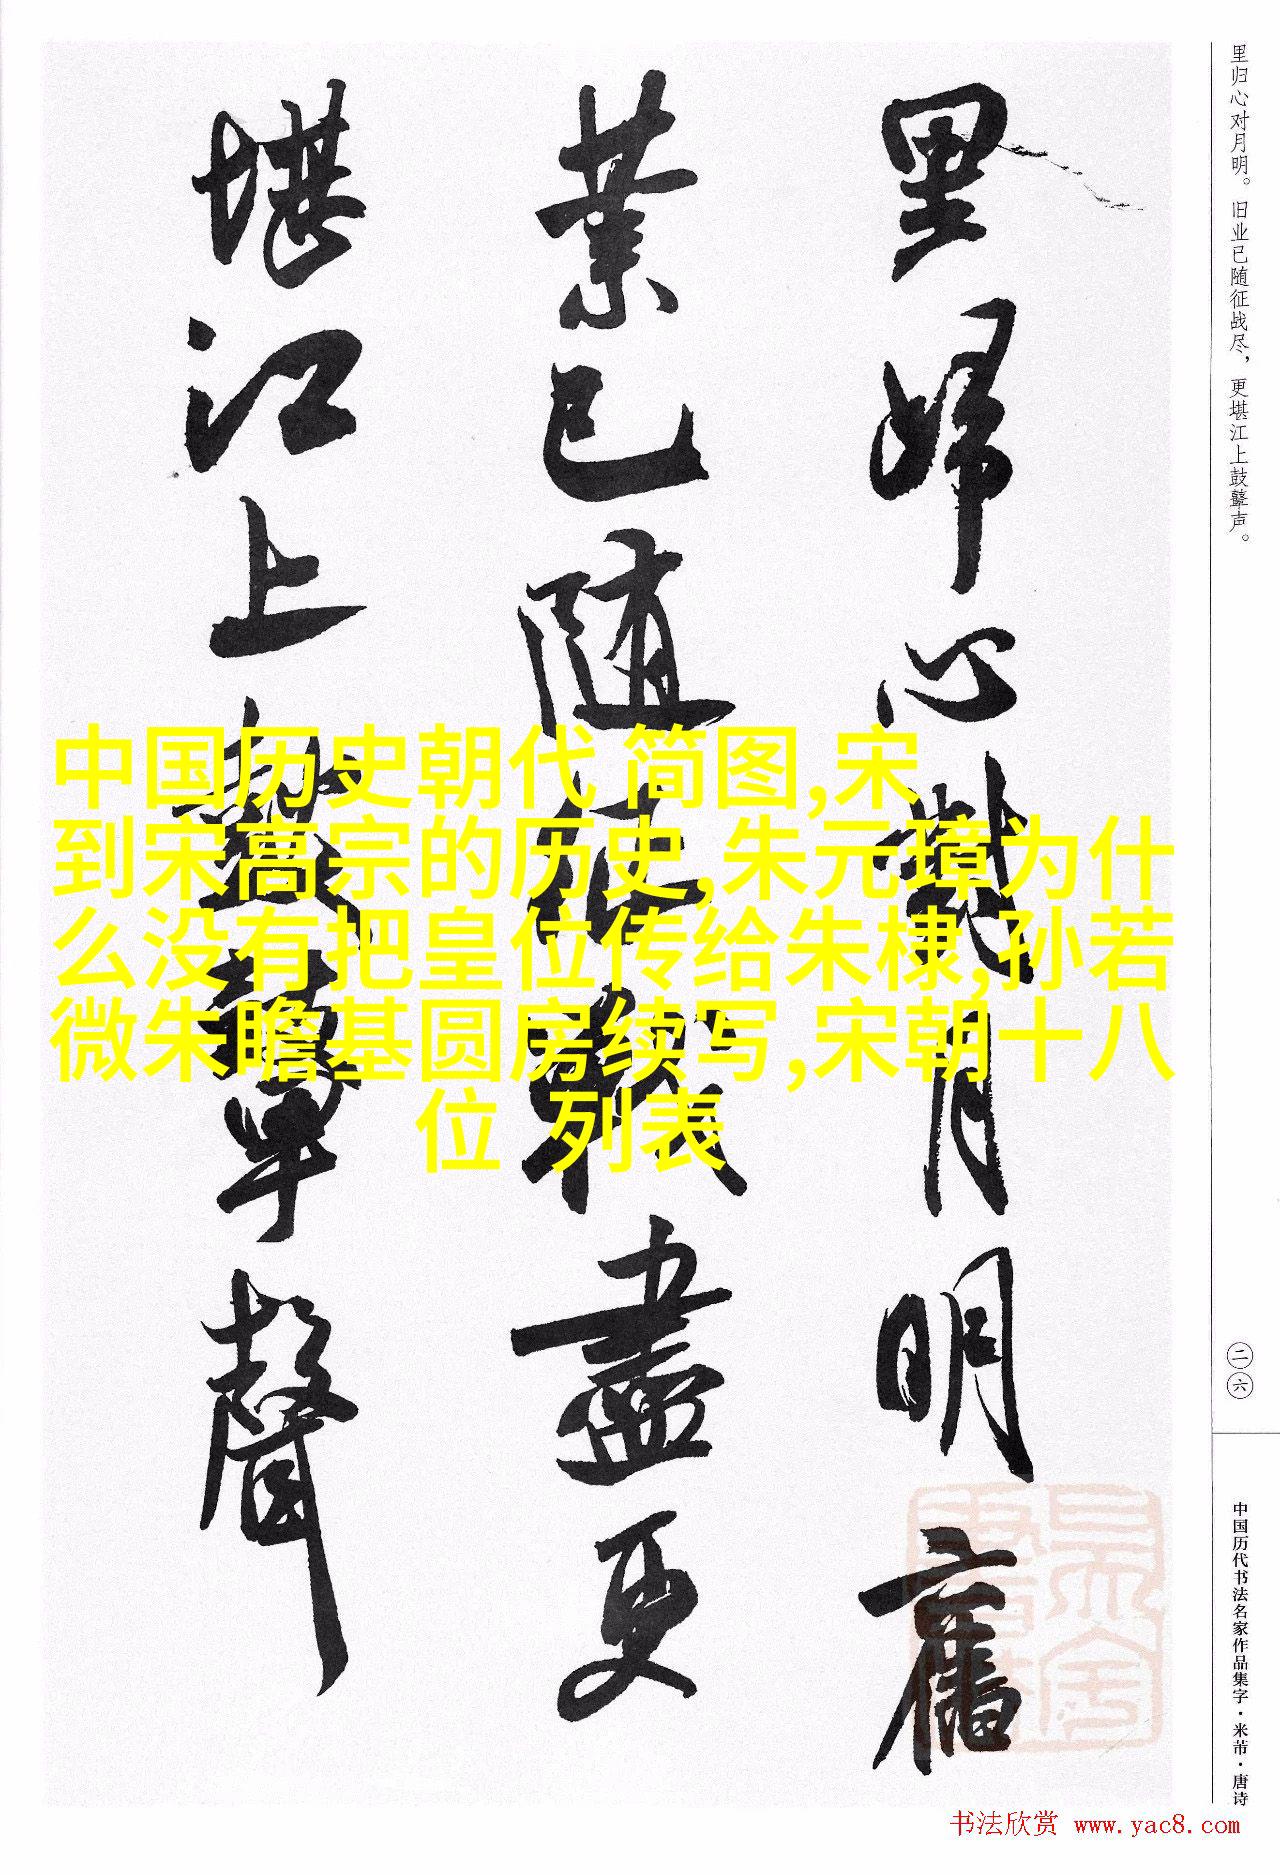 里归心对月明。旧业已随征战尽，更堪江上鼓鼙声。
里歸心對月明舊
業已随征戰盡更
堪江上鼓鼙聲
中国历史朝代 简图,宋
到宋高宗的历史,朱元璋为什
么没有把皇位传给朱棣,孙若
微朱瞻基圆房续写,宋朝十八
位 列表
二六
中国历代书法名家作品集字·米芾·唐诗
书法欣赏 www.yac8.com